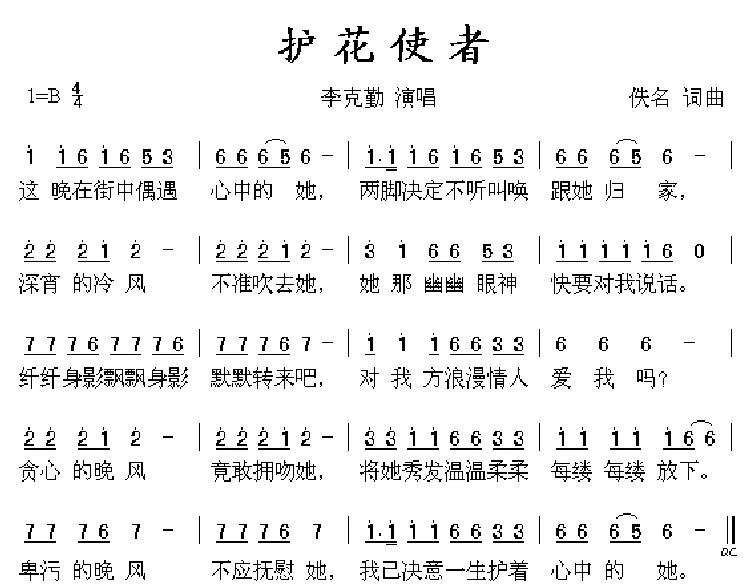 护花使者
1=B 4/4 李克勤 演唱 佚名 词曲
1 16 16 53 | 66 65 6 - | 1·1 16 16 53 | 66 65 6 - |
这 晚在街中偶遇 心中的 她, 两脚决定不听叫唤 跟她 归 家,
22 21 2 - | 22 21 2 - | 3 1 66 53 | 11 11 16 0 |
深宵 的冷 风 不准吹去她, 她 那 幽幽 眼神 快要对我说话。
77 76 77 76 | 77 76 7 - | 1 1 16 63 3 | 6 6 6 - |
纤纤身影飘飘身影 默默转来吧, 对 我 方浪漫情人 爱 我 吗?
22 21 2 - | 22 21 2 - | 33 11 66 33 | 11 11 166 |
贪心 的晚 风 竟敢拥吻她, 将她秀发温温柔柔 每缕 每缕 放下。
77 76 7 - | 77 76 6 7 | 1·1 11 66 33 | 66 65 6 - ||
卑污 的晚 风 不应抚慰 她, 我已决意一生护着 心中 的 她。
DC